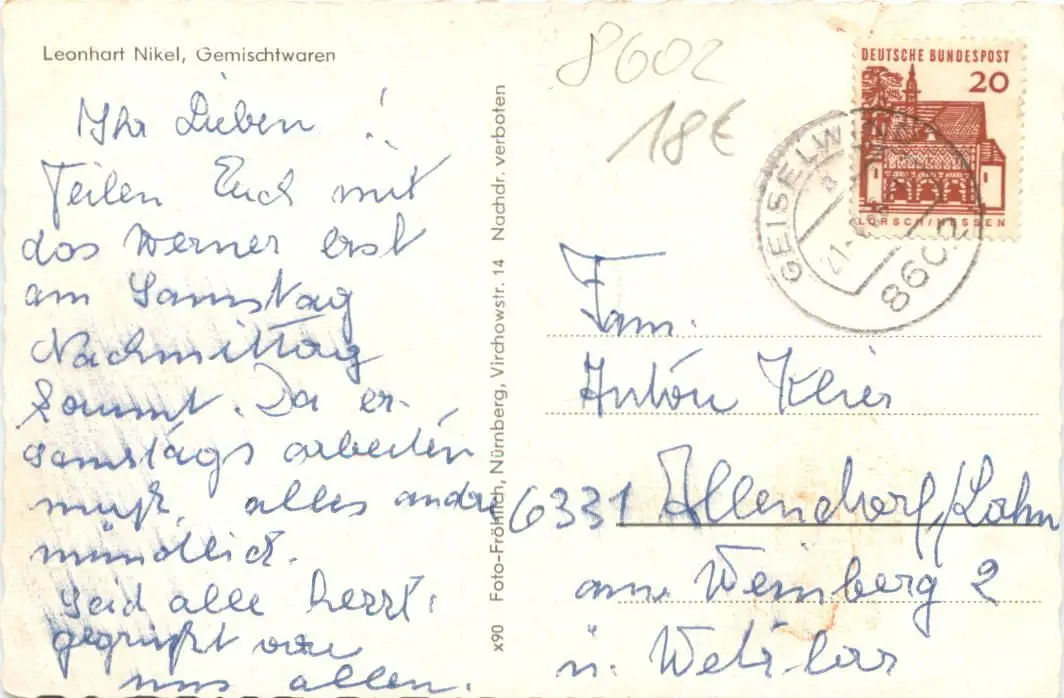 Leonhart Nikel, Gemischtwaren
Ihr Lieben!
Teilen Euch mit
das Werner erst
am Samstag
Nachmittag
kommt. Da er
samstags arbeiten
muß, alles andre
mündlich.
Seid alle herzl.
gegrüßt von
uns allen.
x90 Foto-Fröhlich, Nürnberg, Virchowstr. 14 Nachdr. verboten
8602
18€
DEUTSCHE BUNDESPOST
20
LORSCH/HESSEN
GEISELW
21
8602
Fam.
Anton Klier
6331 Allendorf/Lahn
am Weinberg 2
ü. Wetzlar